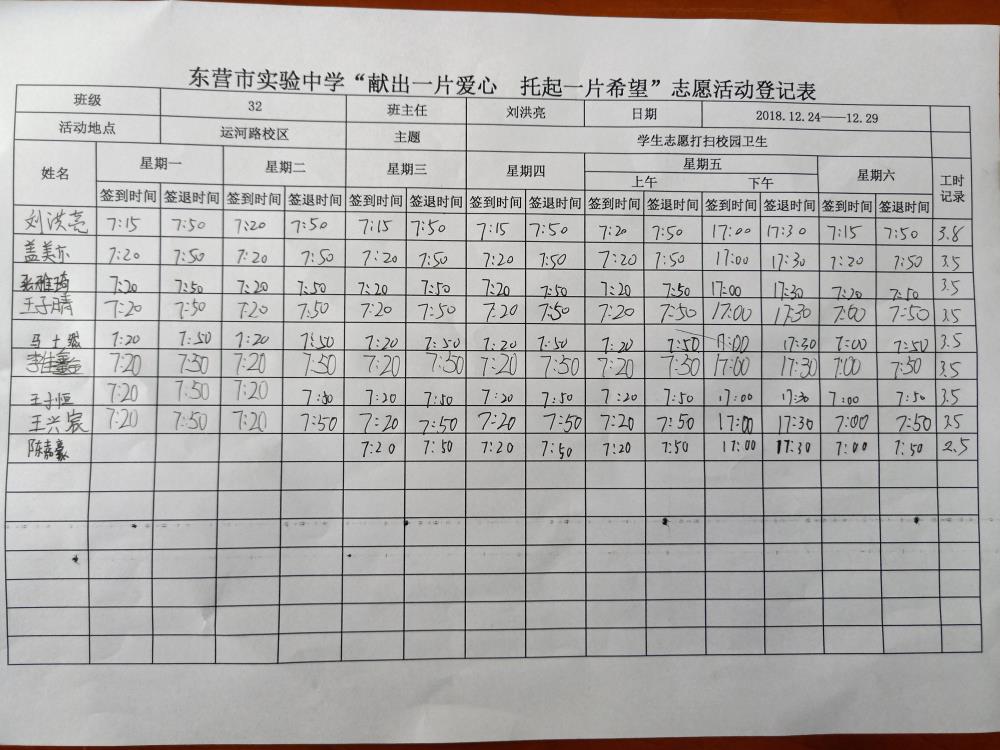 东营市实验中学“献出一片爱心 托起一片希望”志愿活动登记表
班级 32 班主任 刘洪亮 日期 2018.12.24——12.29
活动地点 运河路校区 主题 学生志愿打扫校园卫生
姓名 星期一 星期二 星期三 星期四 星期五 星期六 工时记录
上午 下午
签到时间 签退时间 签到时间 签退时间 签到时间 签退时间 签到时间 签退时间 签到时间 签退时间 签到时间 签退时间 签到时间 签退时间
刘洪亮 7:15 7:50 7:20 7:50 7:15 7:50 7:15 7:50 7:20 7:50 17:00 17:30 7:15 7:50 3.8
盖美亦 7:20 7:50 7:20 7:50 7:20 7:50 7:20 7:50 7:20 7:50 17:00 17:30 7:20 7:50 3.5
张雅琦 7:20 7:50 7:20 7:50 7:20 7:50 7:20 7:50 7:20 7:50 17:00 17:30 7:20 7:50 3.5
王子晴 7:20 7:50 7:20 7:50 7:20 7:50 7:20 7:50 7:20 7:50 17:00 17:30 7:00 7:50 3.5
马士 7:20 7:50 7:20 7:50 7:20 7:50 7:20 7:50 7:20 7:50 17:00 17:30 7:00 7:50 3.5
李佳鑫 7:20 7:50 7:20 7:50 7:20 7:50 7:20 7:50 7:20 7:50 17:00 17:30 7:00 7:50 3.5
王子恒 7:20 7:50 7:20 7:50 7:20 7:50 7:20 7:50 7:20 7:50 17:00 17:30 7:00 7:50 3.5
王兴宸 7:20 7:50 7:20 7:50 7:20 7:50 7:20 7:50 7:20 7:50 17:00 17:30 7:00 7:50 3.5
陈嘉豪 7:20 7:50 7:20 7:50 7:20 7:50 17:00 17:30 7:00 7:50 2.5